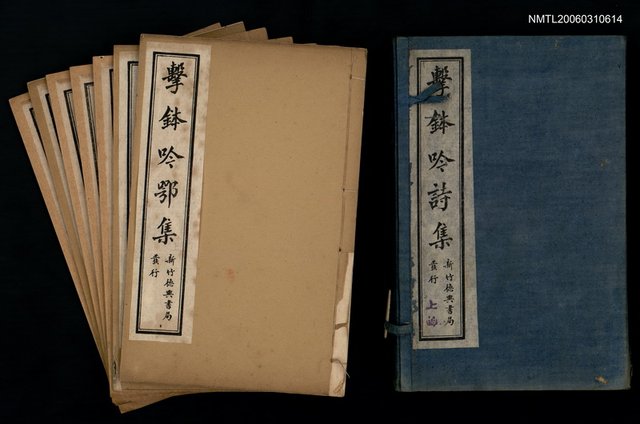 NMTL20060310614
擊鉢吟鄂集
新竹德興書局
發行
擊鉢吟詩集
新竹德興書局
發行
上